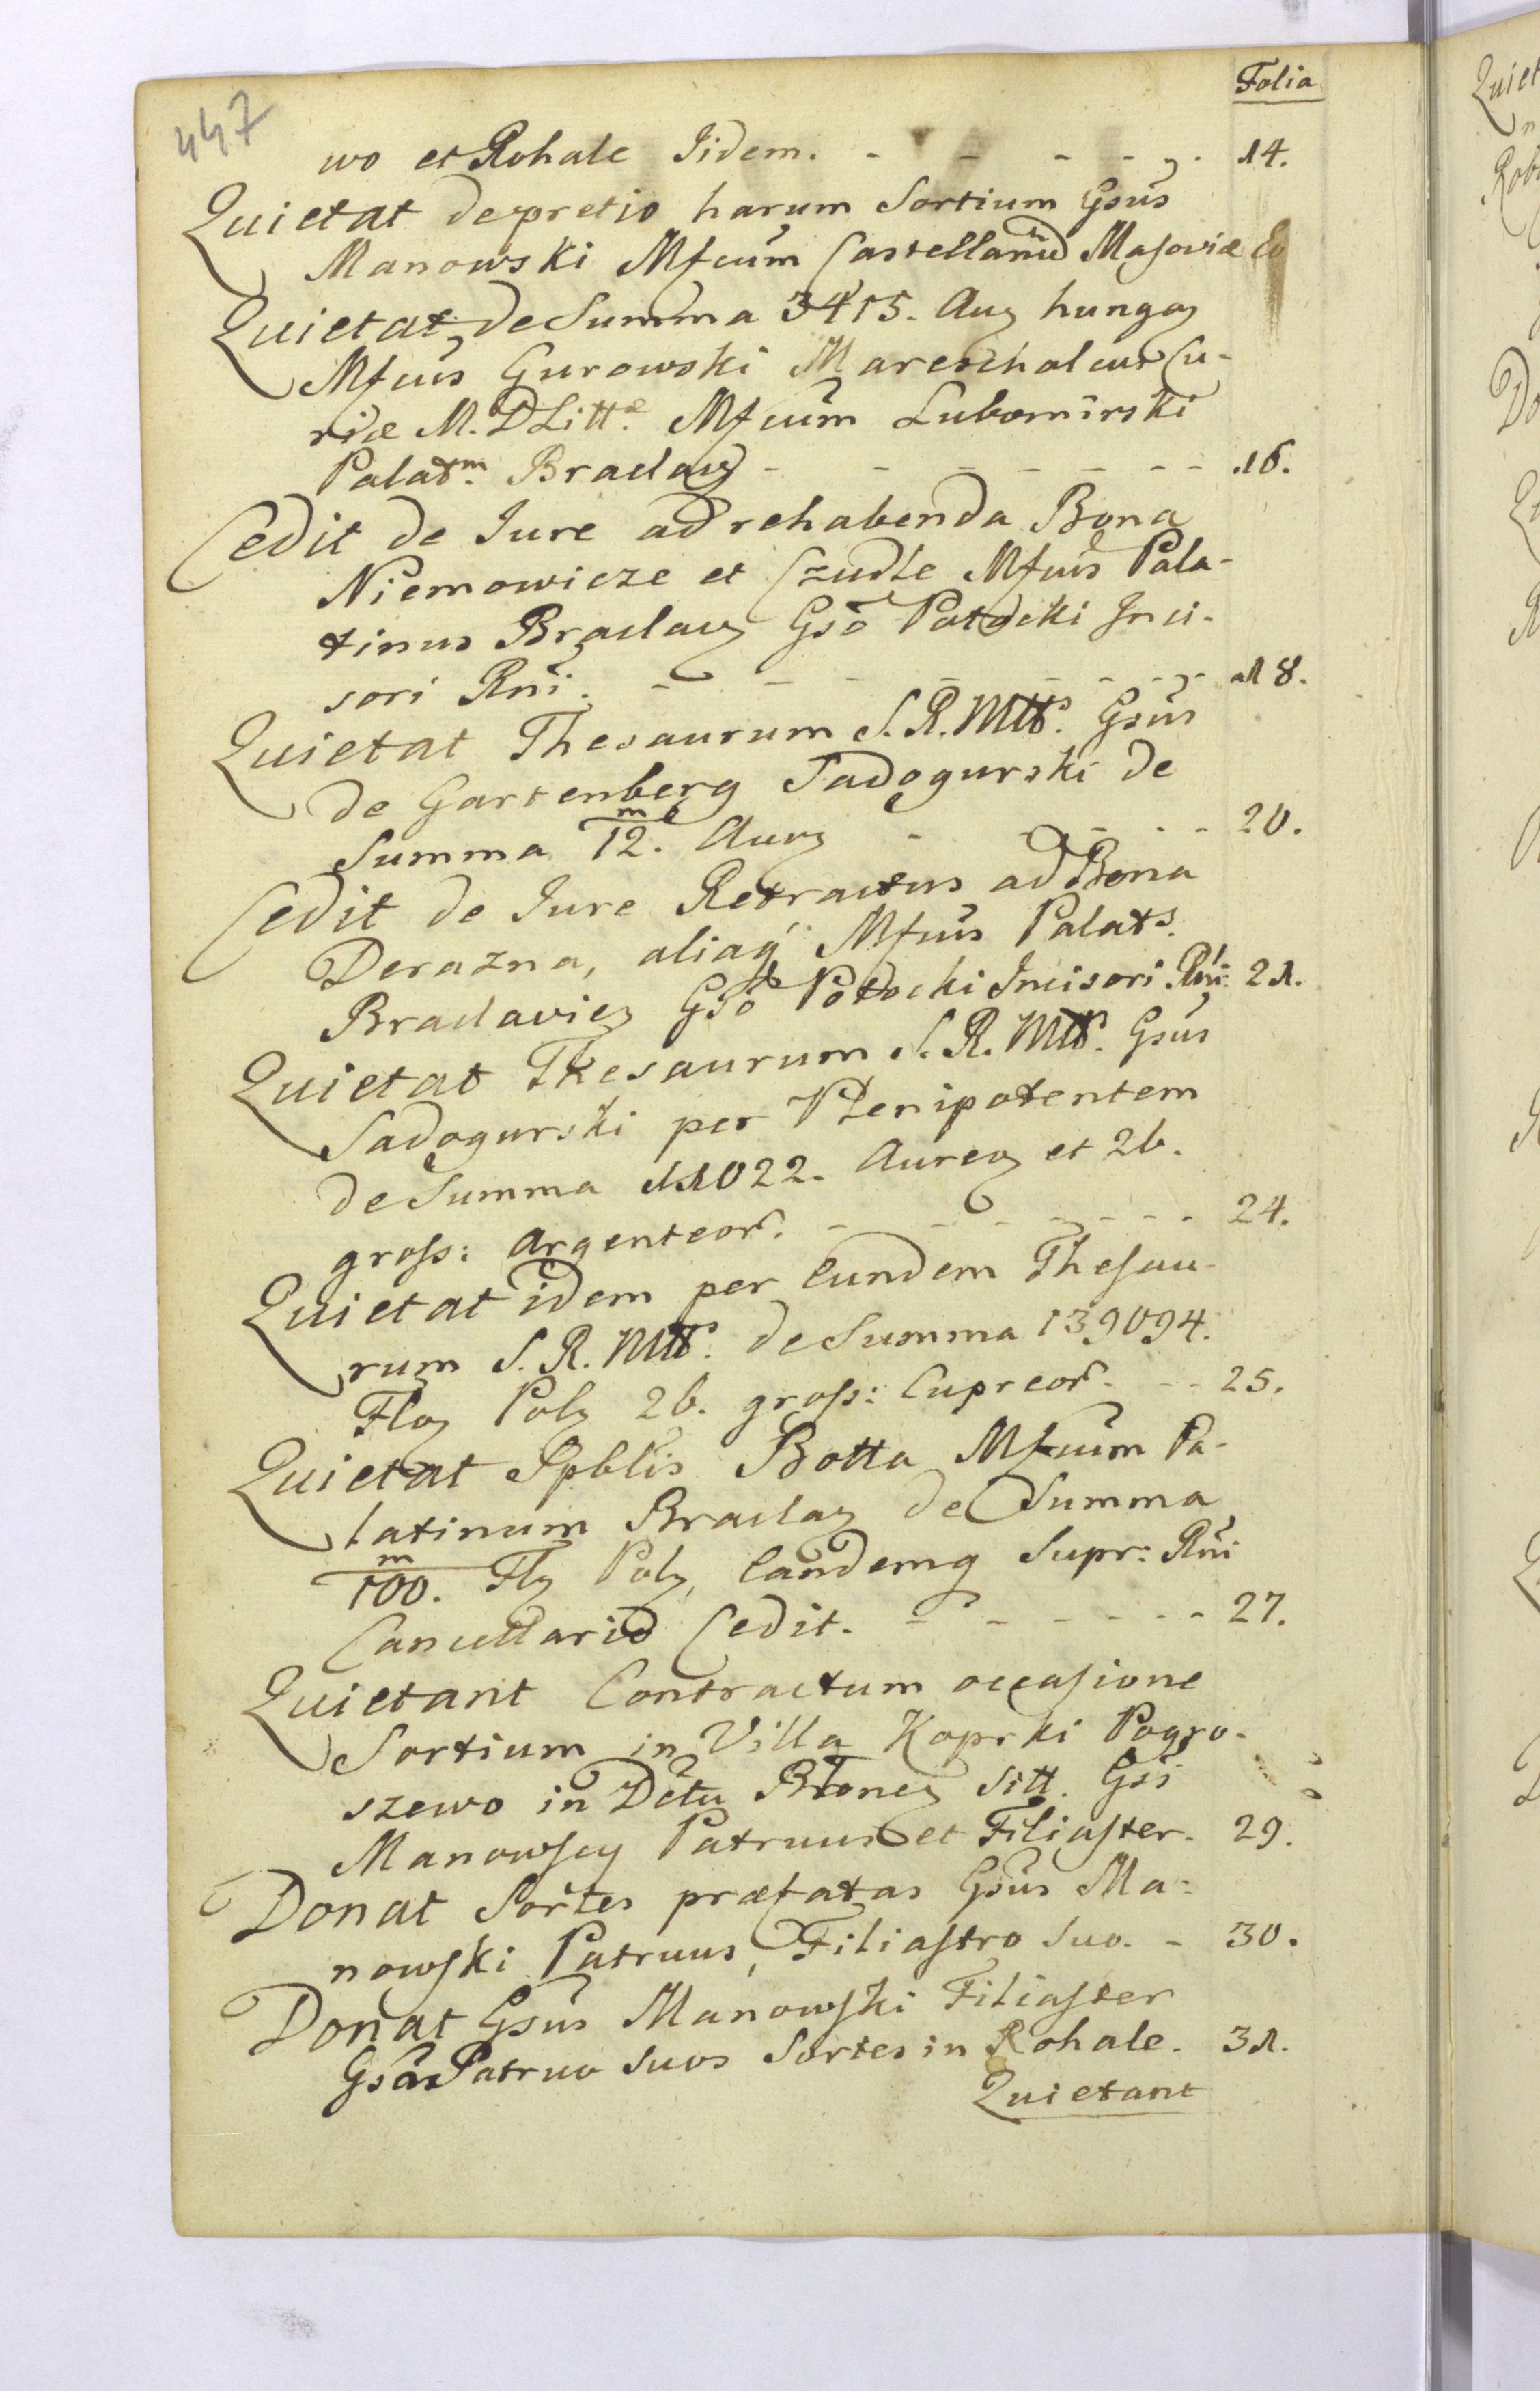 447
Folia
wo et Rohale Iidem. - - - - - 14.
Quietat de pretio harum Sortium Gsus
Manowski Mfcum Castellanum Masoviæ Eo
Quietat de Summa 3415. Aur hungar
Mfcus Gurowski Mareschalcus Cu-
riæ M. D Litt.æ Mfcum Lubomirski
Palat.m Braclav - - - - - - - 16.
Cedit de Iure ad rehabenda Bona
Niemowicze et Czudle Mfcus Pala-
tinus Braclav Gso Potocki Inci-
sori Rni. - - - - - - - 18.
Quietat Thesaurum S. R. Mttis. Gsus
de Gartenberg Sadogurski de
Summa m/12. Aur - - - - - 20.
Cedit de Iure Retractus ad Bona
Derazna, aliaq Mfcus Palat.s
Braclavien Gso Potocki Incisori Rni. 21.
Quietat Thesaurum S. R. Mttis. Gsus
Sadogurski per Plenipotentem
de Summa 11022. Aureor et 26.
gross: argenteor. - - - - - - - 24.
Quietat idem per Eundem Thesau-
rum S. R. Mttis. de Summa 139094.
Flor Pol 26. gross: Cupreor. - - 25.
Quietat Spblis Botta Mfcum Pa-
latinum Braclav de Summa
m/100. Fl Pol, Eandemq Supr: Rni
Cancellario Cedit. - - - - - - 27.
Quietant Contractum occasione
Sortium in Villa Koprki Pogro-
szewo in Dctu Blonen Sitt. Gsi
Manowscy Patruus et Filiaster. 29.
Donat Sortes præfatas Gsus Ma-
nowski Patruus, Filiastro Suo. - 30.
Donat Gsus Manowski Filiaster
Gso Patruo Suos Sortes in Rohale. 31.
Quietant